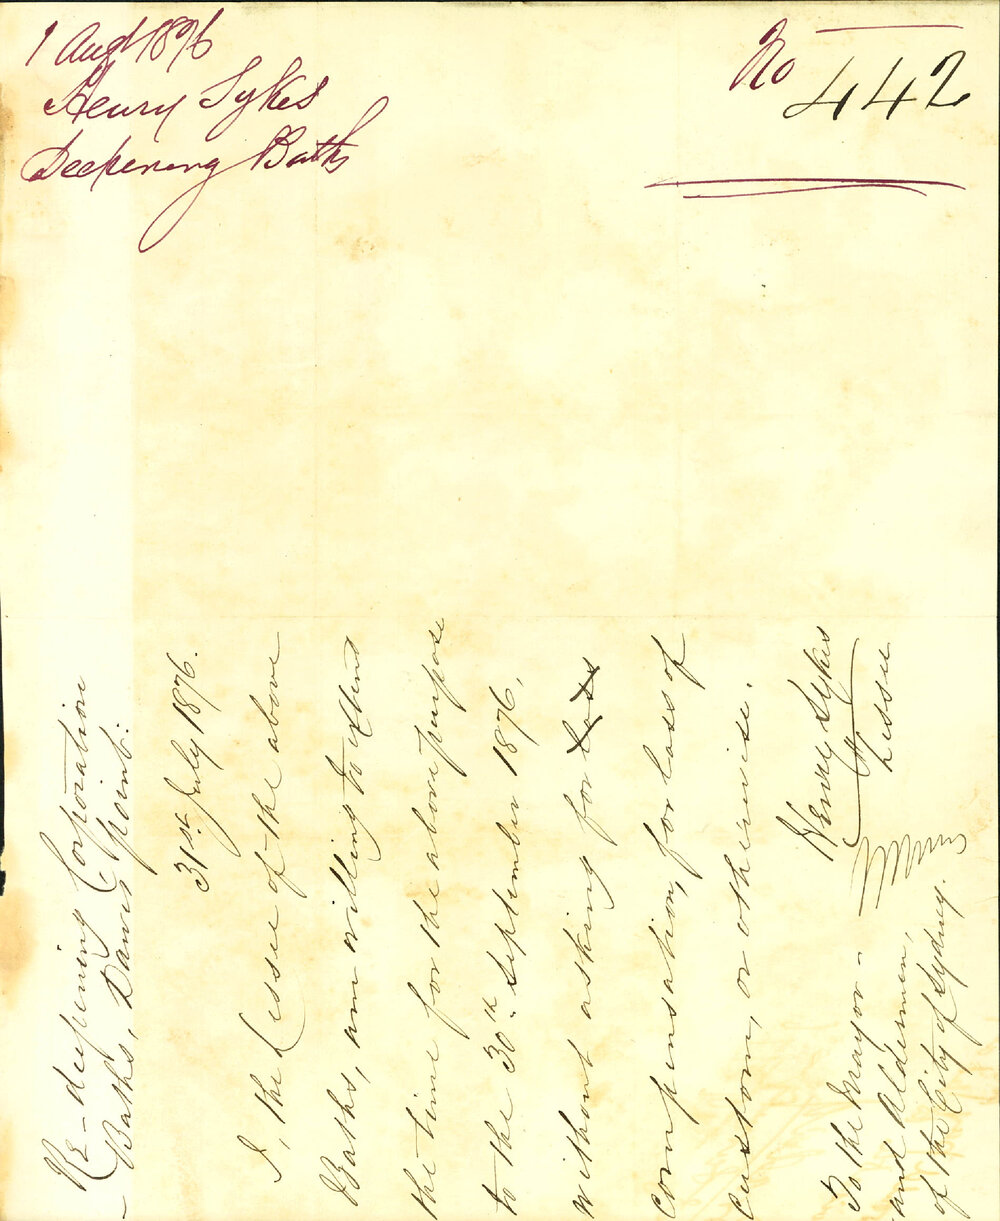 1 Augt 1876
Henry Sykes
Deepening Baths
No 442
Re-deepening Corporation
Baths, Dawes point.
31st July 1876.
I, the Lessee of the above
Baths, am willing to extend
the time for the above purpose
to the 30th September 1876,
without asking for loss
compensation, for loss of
custom, or otherwise.
Henry Sykes
Lessee
To the Mayor
and Aldermen,
of the City of Sydney.